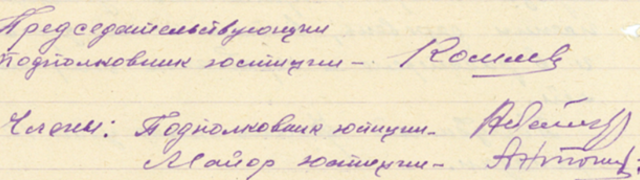 Председательствующий
подполковник юстиции –
Члены: Подполковник юстиции –
Майор юстиции –